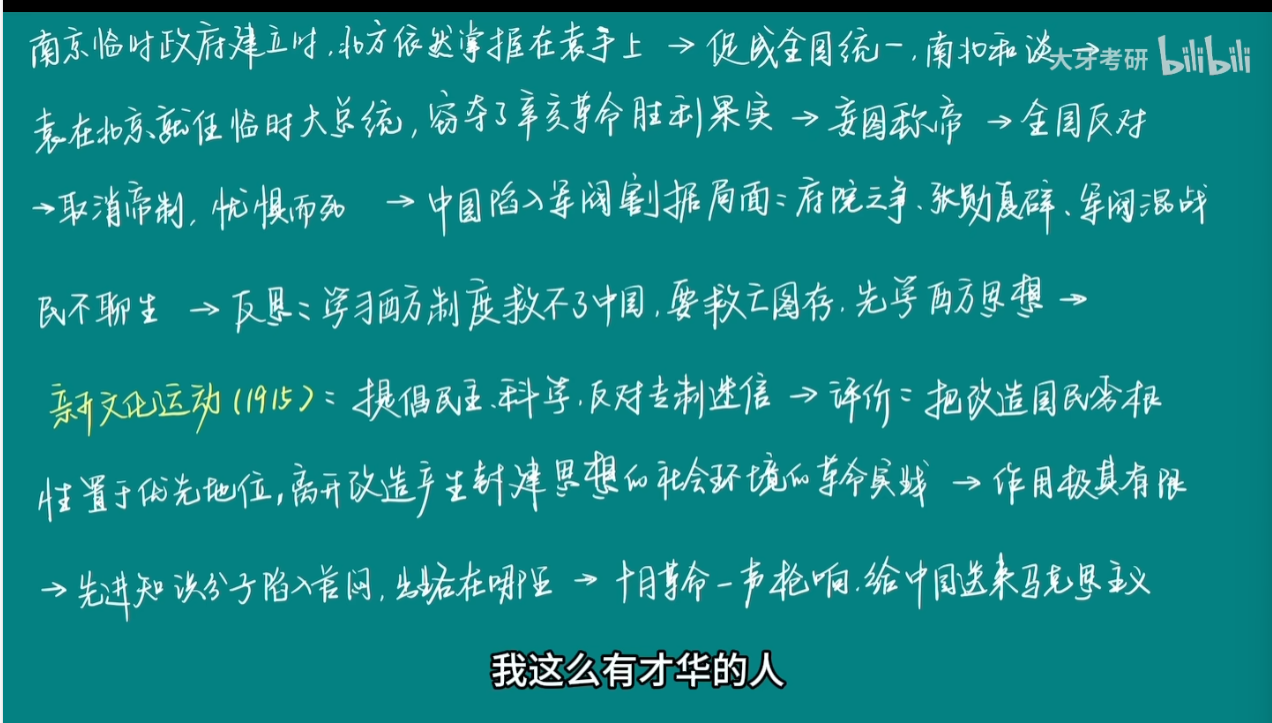 南京临时政府建立时,北方依然掌握在袁手上 → 促成全国统一,南北和谈 →
大牙考研 bilibili
袁在北京就任临时大总统,窃夺了辛亥革命胜利果实 → 妄图称帝 → 全国反对
→取消帝制,忧惧而死 → 中国陷入军阀割据局面:府院之争、张勋复辟、军阀混战
民不聊生 → 反思:学习西方制度救不了中国,要救亡图存,先学西方思想 →
新文化运动(1915):提倡民主、科学,反对专制迷信 → 评价:把改造国民劣根
性置于优先地位,离开改造产生封建思想的社会环境的革命实践 → 作用极其有限
→ 先进知识分子陷入苦闷,出路在哪里 → 十月革命一声枪响,给中国送来马克思主义
我这么有才华的人